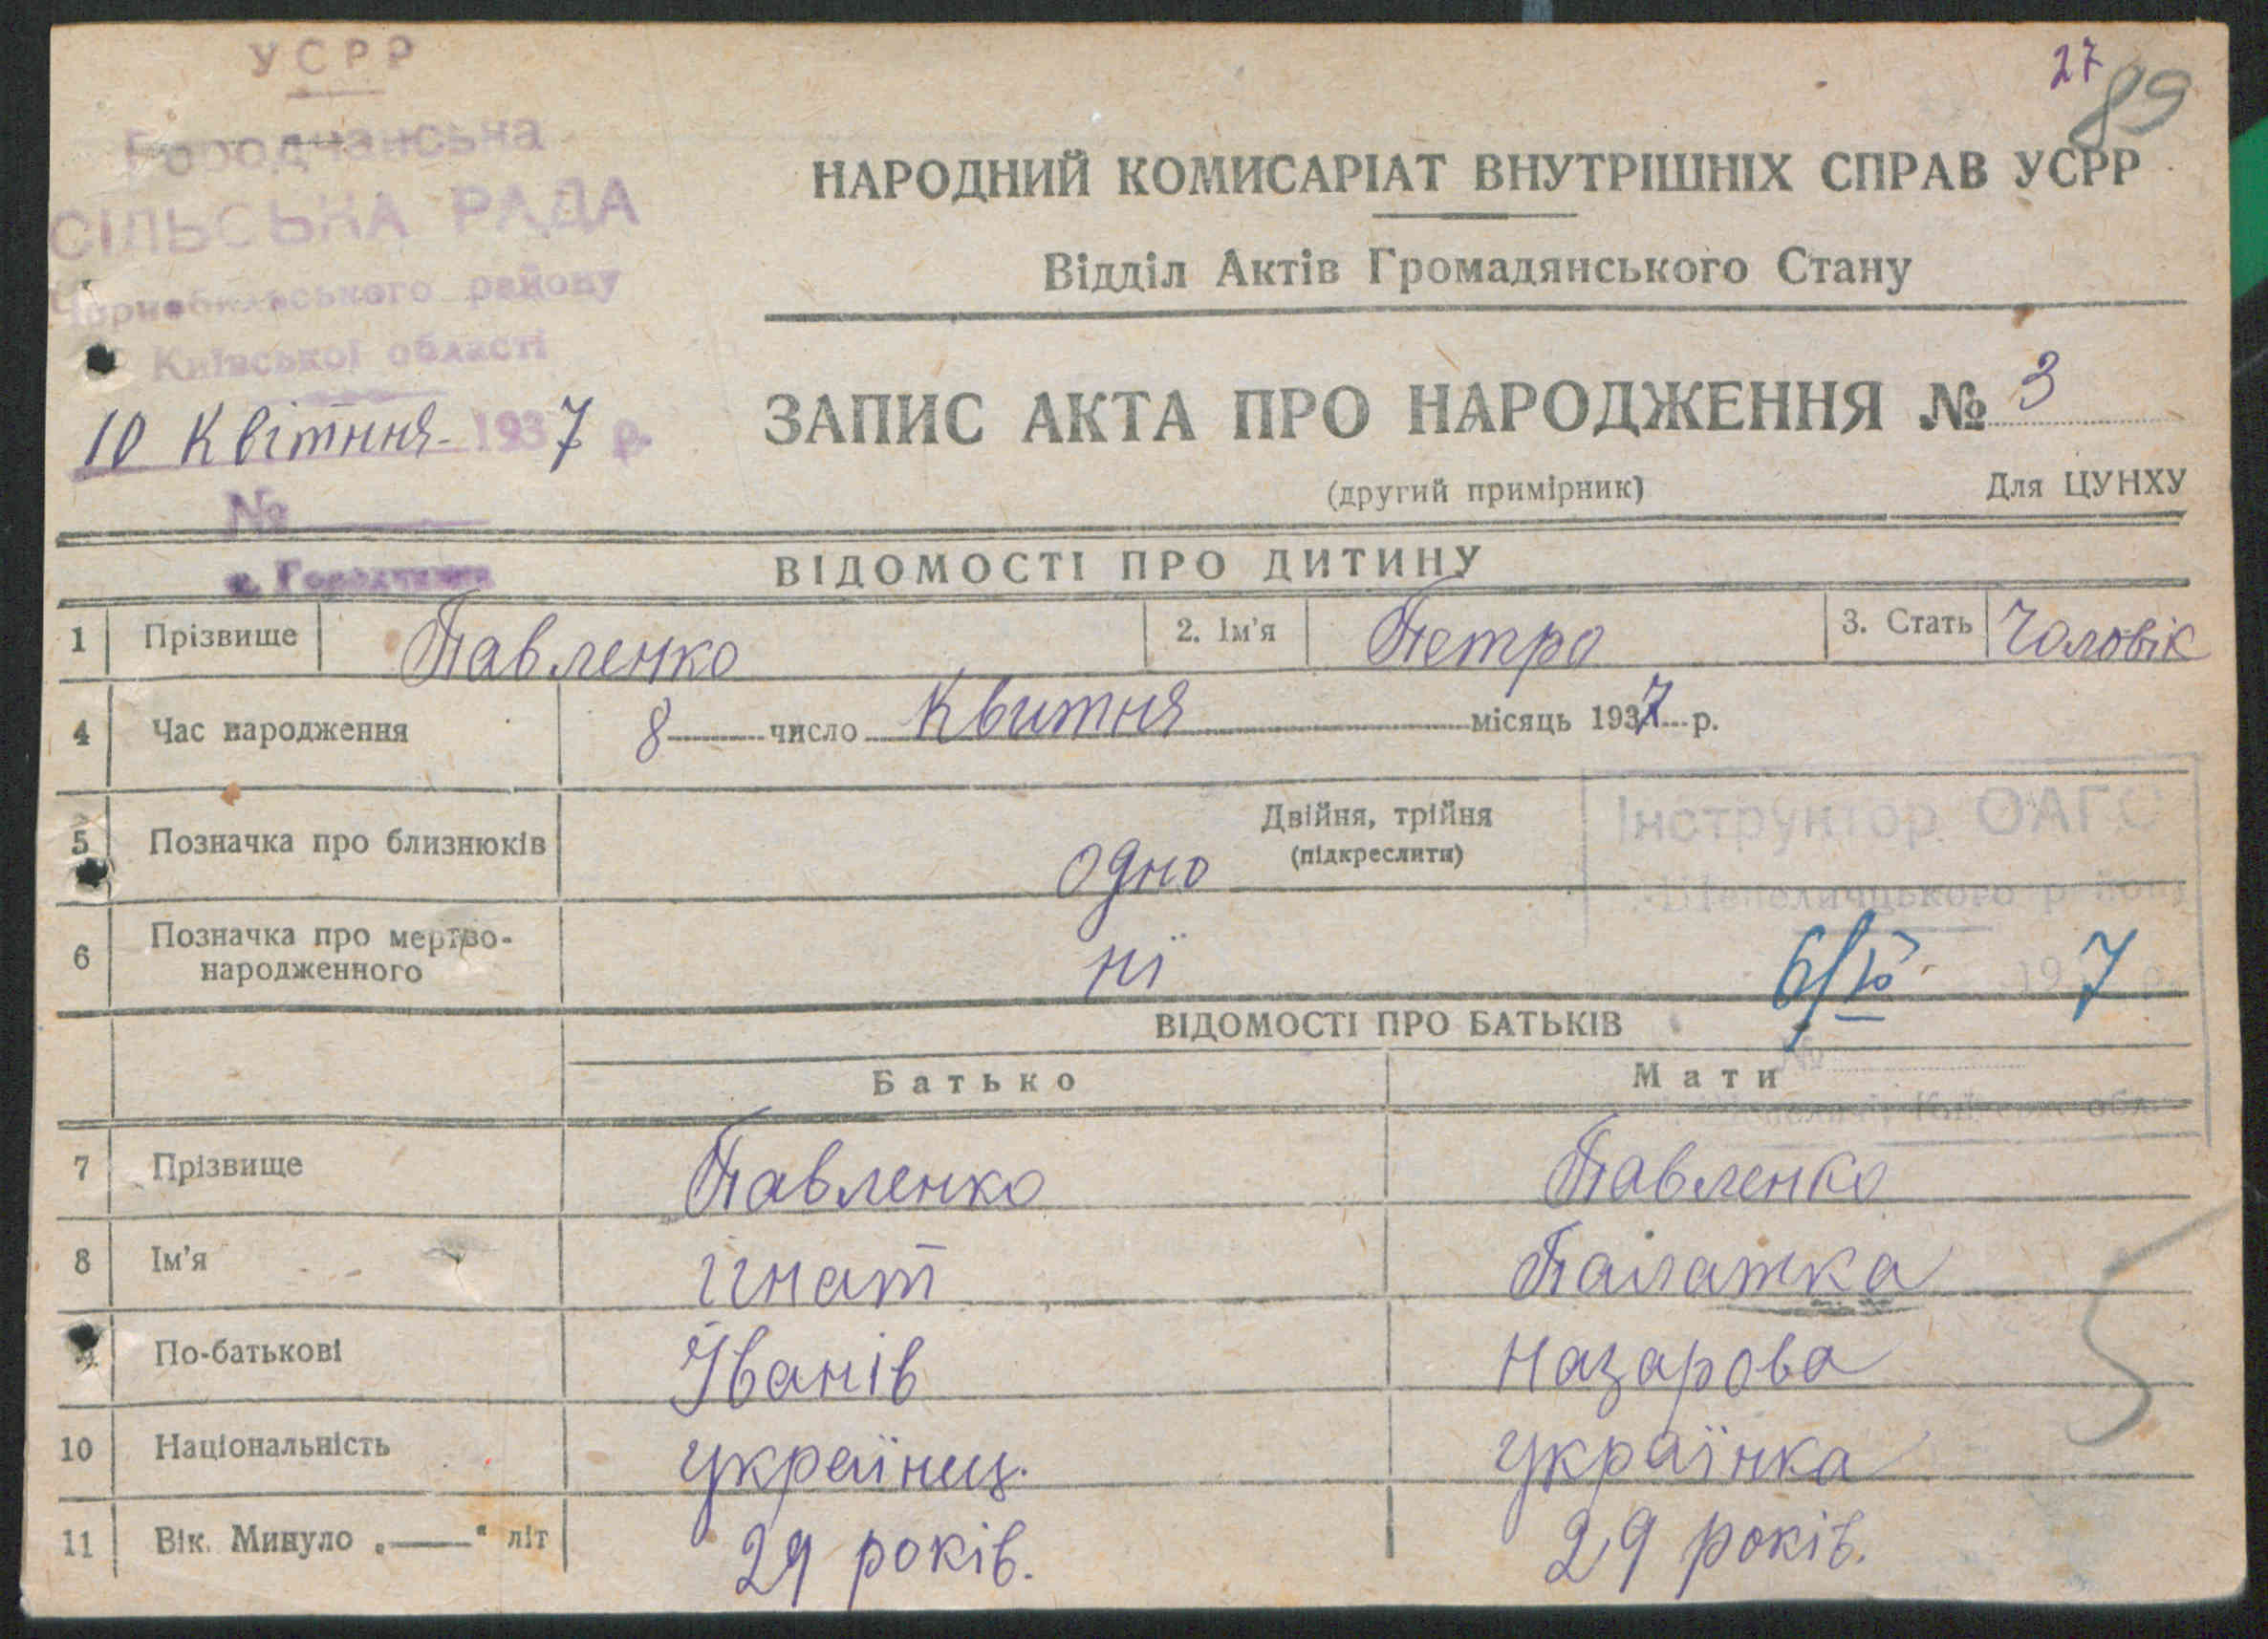 УСРР
Городчанська
СІЛЬСЬКА РАДА
Чорнобильського району
Київської області
10 Квітння 1937 р.
№
27
89
НАРОДНИЙ КОМИСАРІАТ ВНУТРІШНІХ СПРАВ УСРР
Відділ Актів Громадянського Стану
ЗАПИС АКТА ПРО НАРОДЖЕННЯ № 3
(другий примірник) Для ЦУНХУ
ВІДОМОСТІ ПРО ДИТИНУ
1 Прізвище Павленко 2. Ім'я Петро 3. Стать Чоловік
4 Час народження 8 число Квитня місяць 1937 р.
5 Позначка про близнюків одно Двійня, трійня
(підкреслити)
Інструктор ОАГС
6 Позначка про мертво-
народженного ні
6/IV 1937 р.
ВІДОМОСТІ ПРО БАТЬКІВ
Батько Мати
7 Прізвище Павленко Павленко
8 Ім'я Игнат Палажка
9 По-батькові Іванів Назарова
10 Національність українец. українка
11 Вік. Минуло „—" літ 29 років. 29 років.